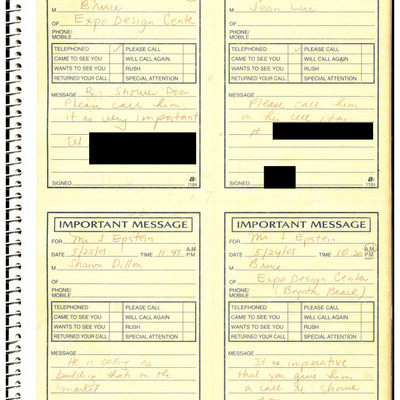 M Bruce
OF Expo Design Center
PHONE/
MOBILE
TELEPHONED ✓ PLEASE CALL
CAME TO SEE YOU WILL CALL AGAIN
WANTS TO SEE YOU RUSH
RETURNED YOUR CALL SPECIAL ATTENTION
MESSAGE Re: Shower Door
Please call him.
it is very important
tel
SIGNED 1184
M Jean Luc
OF
PHONE/
MOBILE
TELEPHONED PLEASE CALL
CAME TO SEE YOU WILL CALL AGAIN
WANTS TO SEE YOU RUSH
RETURNED YOUR CALL SPECIAL ATTENTION
MESSAGE
Please call him
on his cell phone
#
SIGNED 1184
IMPORTANT MESSAGE
FOR Mr J Epstein
DATE 5/25/05 TIME 11:45 A.M. P.M.
M Shawn Dillon
OF
PHONE/
MOBILE
TELEPHONED PLEASE CALL
CAME TO SEE YOU WILL CALL AGAIN
WANTS TO SEE YOU RUSH
RETURNED YOUR CALL SPECIAL ATTENTION
MESSAGE
He is calling re
building thats on the
market
IMPORTANT MESSAGE
FOR Mr J Epstein
DATE 5/24/05 TIME 10:20 A.M. P.M.
M Bruce
OF Expo Design Center
PHONE/
MOBILE (Boynton Beach)
TELEPHONED PLEASE CALL
CAME TO SEE YOU WILL CALL AGAIN
WANTS TO SEE YOU RUSH
RETURNED YOUR CALL SPECIAL ATTENTION
MESSAGE
It is imperative
that you give him
a call re: shower